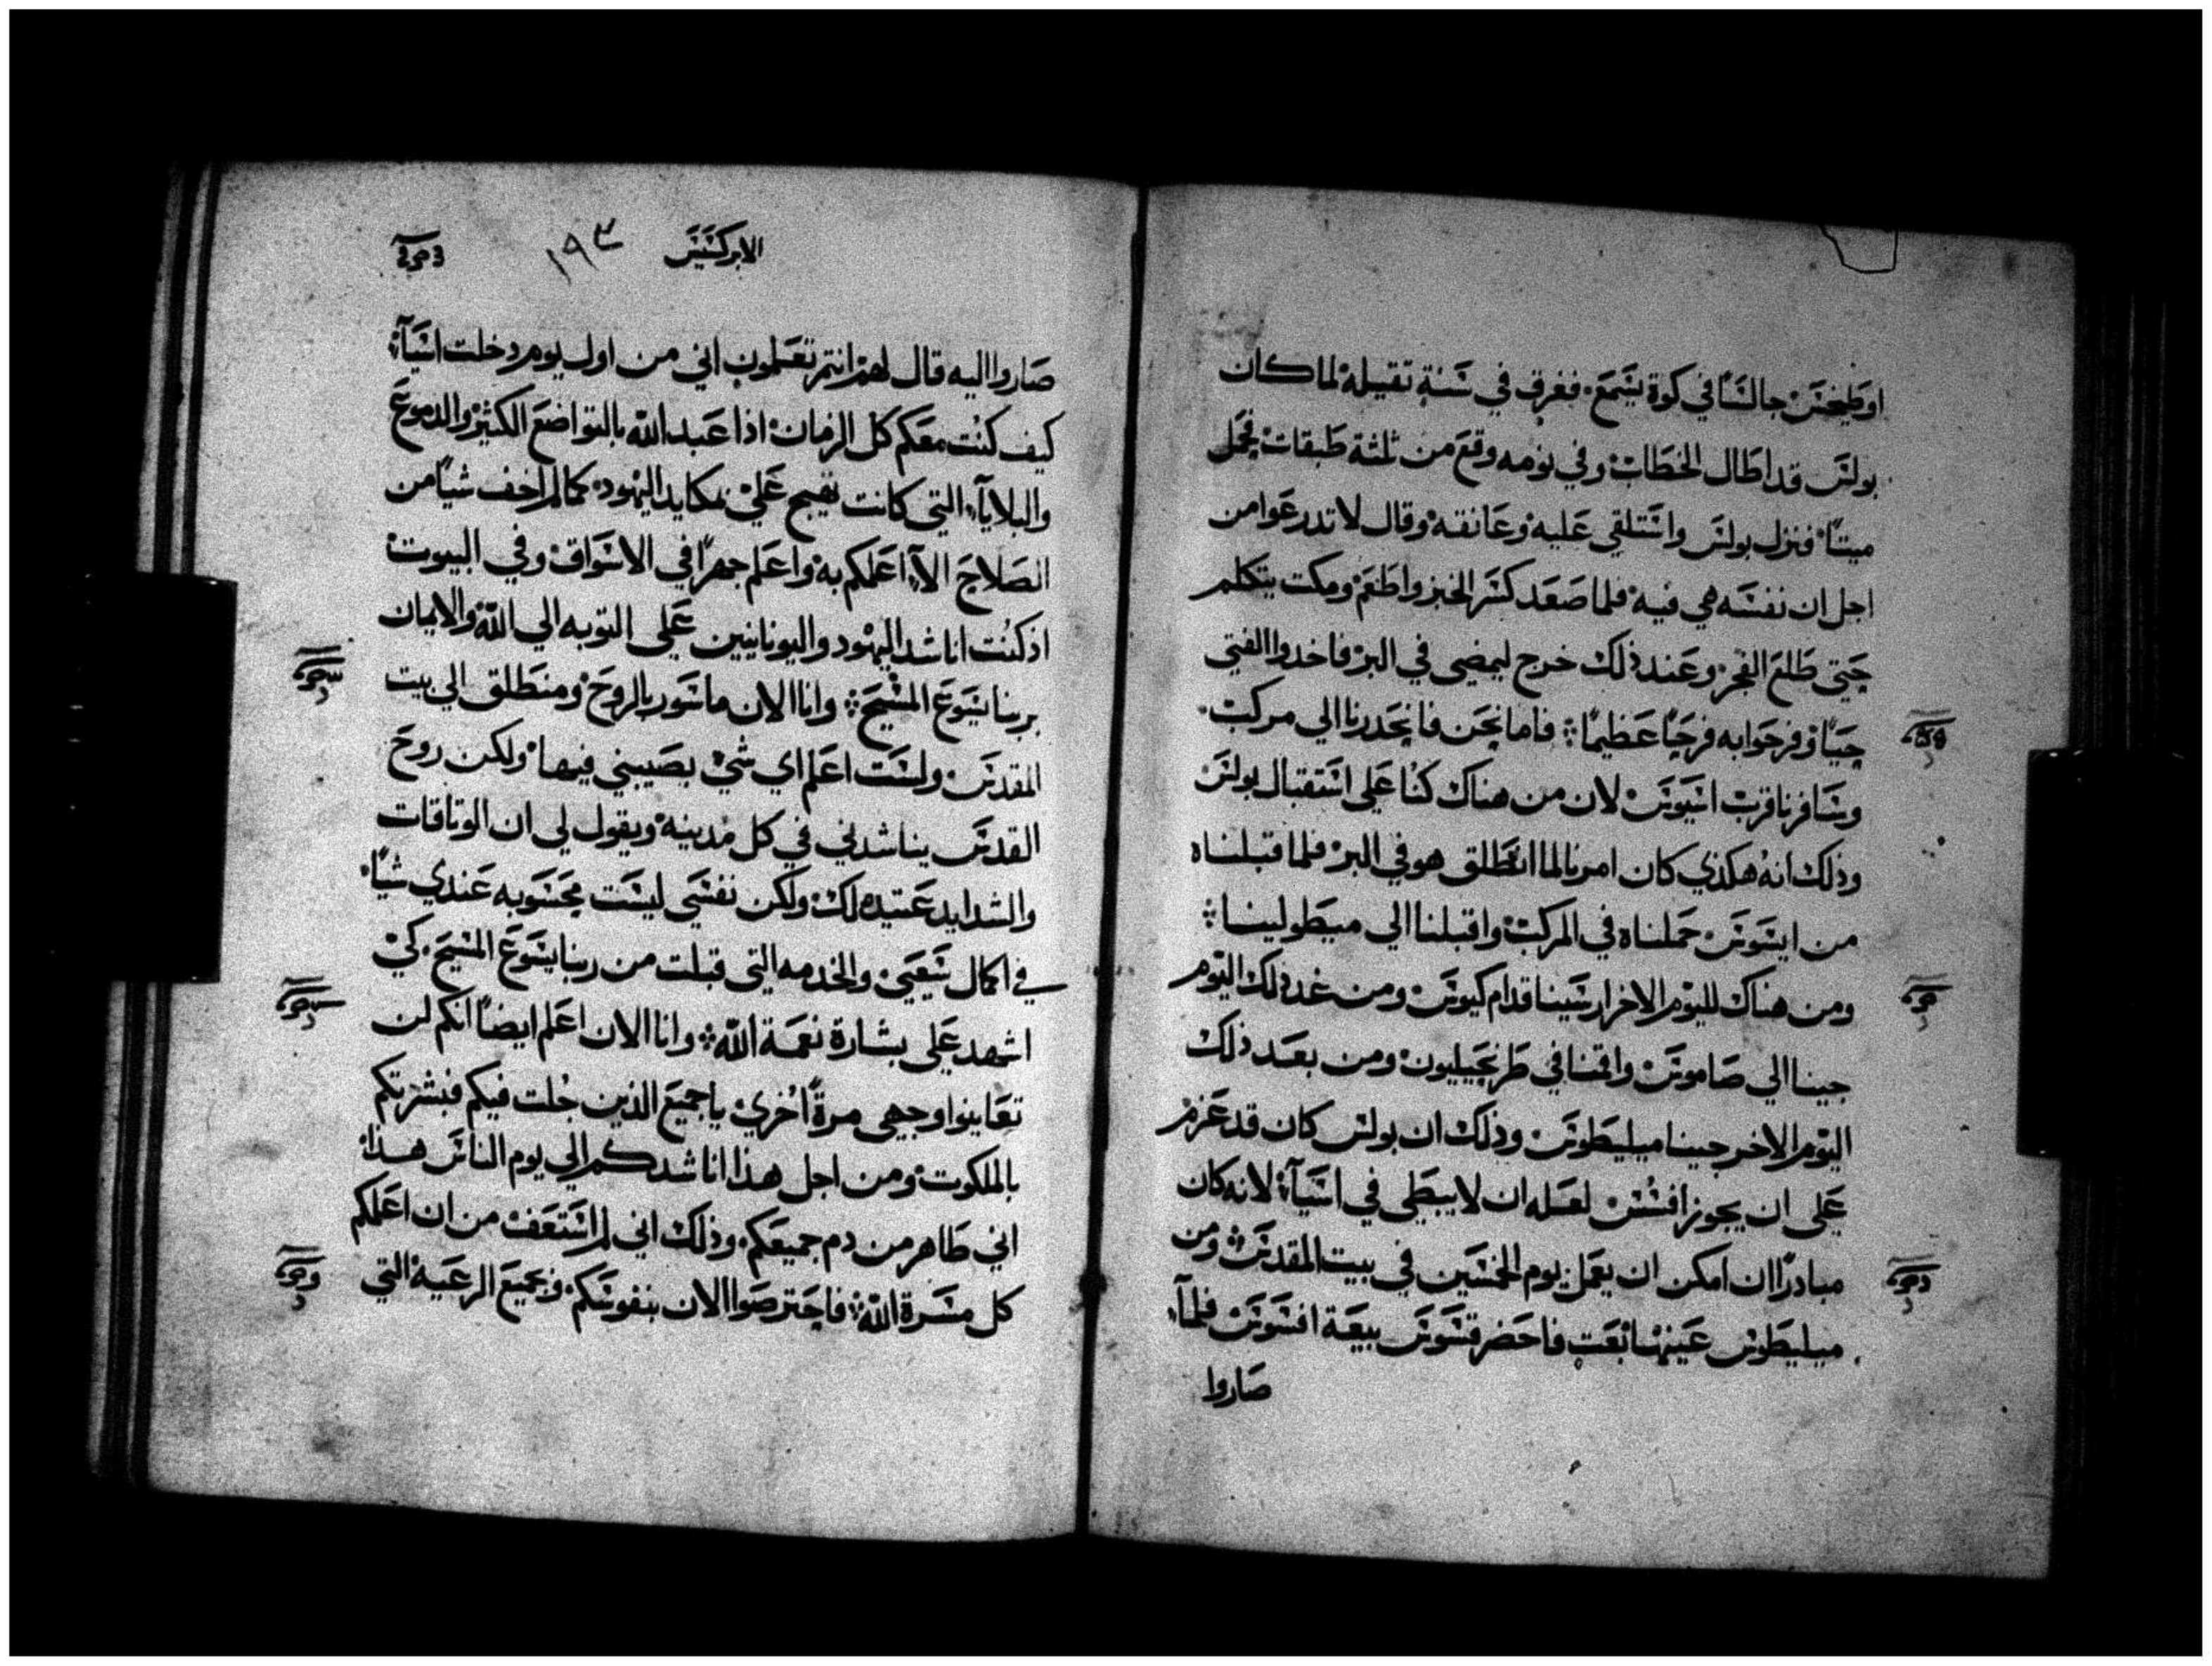 اوطيخس جالسًا في كوة يسمع. فغرق في سنة تقيله لما كان
بولس قد اطال الخطاب وفي نومه وقع من ثلثة طبقات فحمل
ميتًا فنزل بولس واستلقي عليه وعانقه وقال لا تدرعوا من
اجل ان نفسه هي فيه فلما صعد كسر الخبز واطعم ومكت يتكلم
حتي طلع الفجر وعند ذلك خرج ليمضي في البر فاخدوا الفتي
حيًا وفرحوا به فرحًا عظيمًا ፨ فاما نحن فانحدرنا الي مركب
وسافرنا قرب اسيوس لان من هناك كنا علي استقبال بولس
وذلك انه هكذي كان امرنا لما انطلق هو في البر فلما قبلناه
من ايسوس حملناه في المركب واقبلنا الي ميطولينا ፨
ومن هناك لليوم الاخر ارسينا قدام كيوس ومن غد ذلك اليوم
جينا الي صاموس واقمنا في طرنجيليون ومن بعد ذلك
اليوم الاخر جينا ميليطوس وذلك ان بولس كان قد عزم
علي ان يجوز افسس لعله ان لا يبطي في اسيآ لانه كان
مبادرًا ان امكن ان يعمل يوم الخمسين في بيت المقدس ومن
ميليطوس عينها بعت فاحضر قسوس بيعة افسوس فلمآ
صاروا
الابركسيس ١٩٣
صاروا اليه قال لهم انتم تعلمون اني من اول يوم دخلت اسيآ
كيف كنت معكم كل الزمان اذا عبد الله بالتواضع الكثير والدموع
والبلايآ التي كانت تهيج علي بمكايد اليهود كما لم اخف شيًا من
الصلاح الآ اعلمكم به واعلم جهرًا في الاسواق وفي البيوت
اذ كنت اناشد اليهود واليونانيين علي التوبه الي الله والايمان
بربنا يسوع المسيح ፨ وانا الان ماسور بالروح ومنطلق الي بيت
المقدس ولست اعلم اي شي يصيبني فيها ولكن روح
القدس يناشدني في كل مدينه ويقول لي ان الوتاقات
والشدايد عتيده لك ولكن نفسي ليست محسوبه عندي شيًا
في اكمال سعيي والخدمه التي قبلت من ربنا يسوع المسيح كي
اشهد علي بشارة نعمة الله ፨ وانا الان اعلم ايضًا انكم لن
تعاينوا وجهي مرةً اخري يا جميع الذين جلت فيكم فبشرتكم
بالملكوت ومن اجل هذا اناشدكم الي يوم الناس هذا
اني طاهر من دم جميعكم. وذلك اني لم استعف من ان اعلمكم
كل مسرة الله ፨ فاحترصوا الان بنفوسكم وبجميع الرعية التي